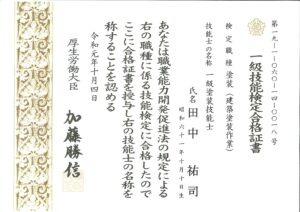 第一九-一-〇六〇-一四-〇〇一八号
一級技能検定合格証書
検定職種 塗装(建築塗装作業)
技能士の名称 一級塗装技能士
氏名 田中祐司
昭和六十一年十月十日生
あなたは職業能力開発促進法の規定による
右の職種に係る技能検定に合格したので
ここに合格証書を授与し右の技能士の名称を
称することを認める
令和元年十月四日
厚生労働大臣 加藤勝信